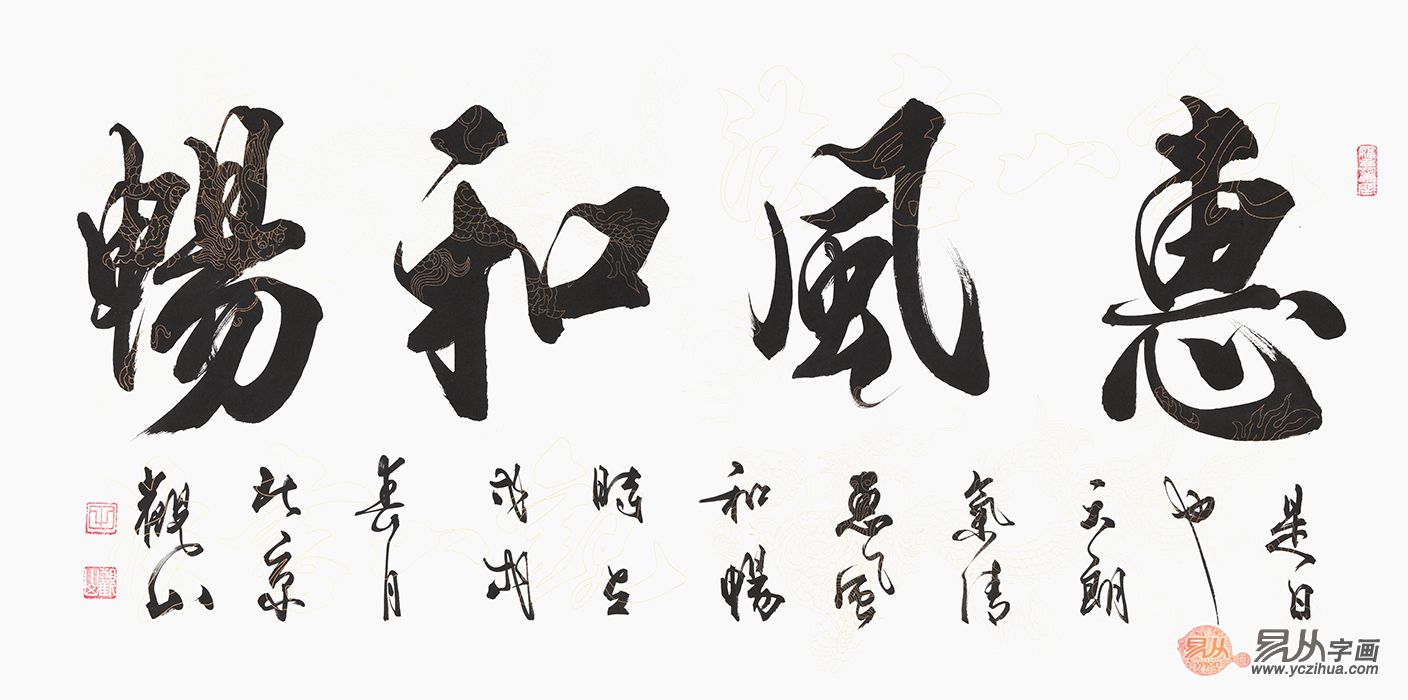 惠風和暢
是日
也
天朗
氣清
惠風
和暢
時在
戊戌
春月
北京
觀山
易从
yejon
易从字画
www.yczihua.com